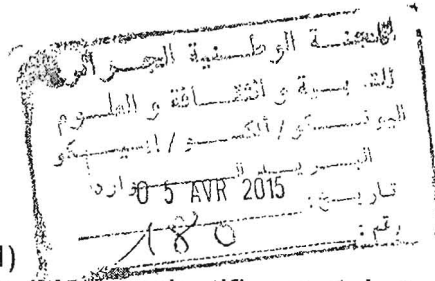 اللجنة الوطنية الجزائرية
للتربية و الثقافة و العلوم
اليونسكو / ألكسو / إيسيسكو
البريد الوارد
تاريخ: 05 AVR 2015
رقم: